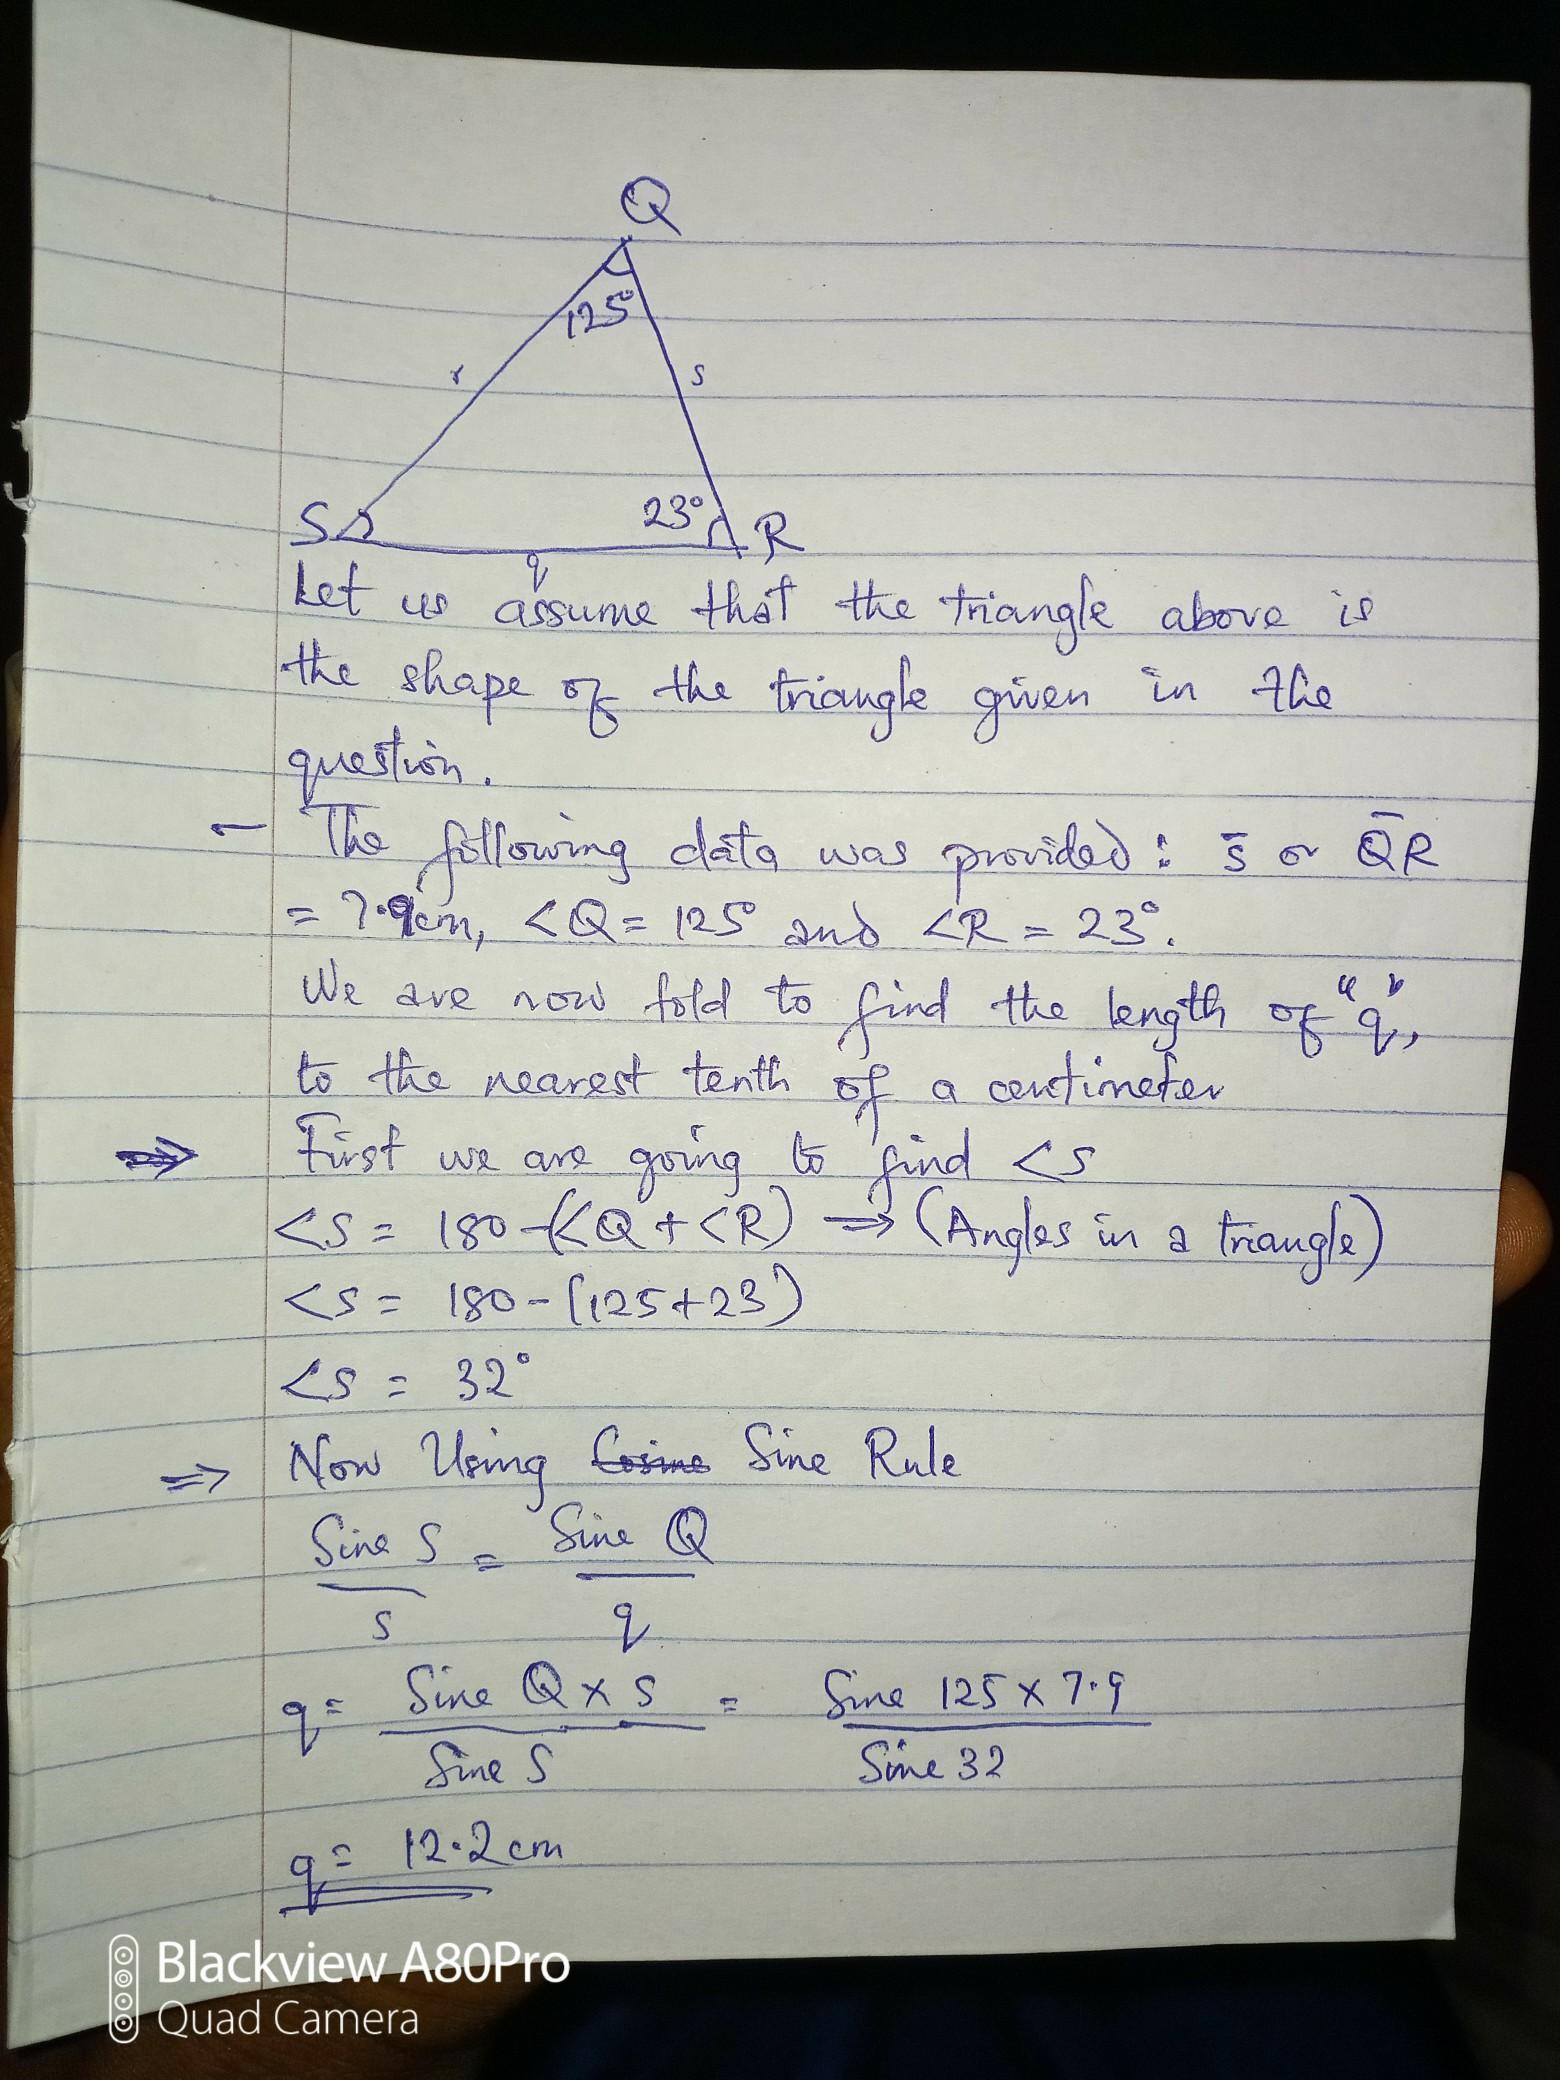 Q
125°
r
s
S
23°
R
q
Let us assume that the triangle above is
the shape of the triangle given in the
question.
- The following data was provided : s̄ or Q̄R
= 7.9cm, <Q = 125° and <R = 23°.
We are now told to find the length of "q",
to the nearest tenth of a centimeter
⇒ First we are going to find <S
<S = 180-(<Q + <R) ⇒ (Angles in a triangle)
<S = 180-(125+23)
<S = 32°
⇒ Now Using Cosine Sine Rule
Sine S = Sine Q
s q
q = Sine Q x s = Sine 125 x 7.9
Sine S Sine 32
q = 12.2 cm
Blackview A80Pro
Quad Camera